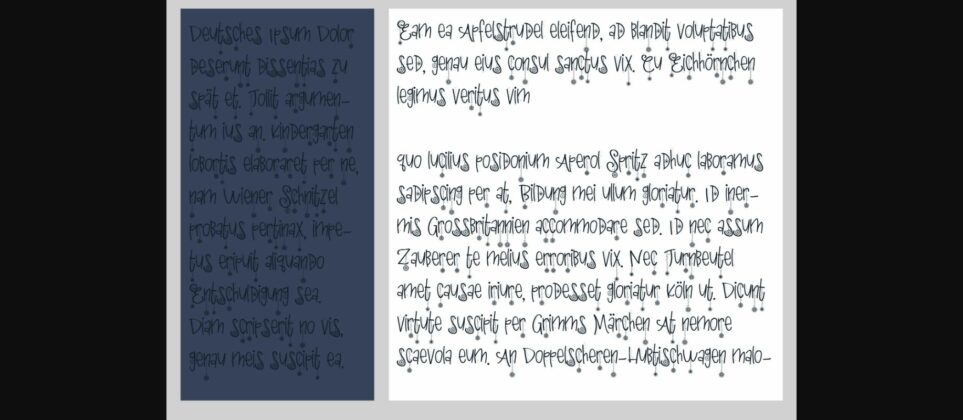 Deutsches Ipsum Dolor
deserunt dissentias zu
spät et. Tollit argumen-
tum ius an. Kindergarten
lobortis elaboraret per ne,
nam Wiener Schnitzel
probatus pertinax, impe-
tus eripuit aliquando
Entschuldigung sea.
Diam scripserit no vis,
genau meis suscipit ea.
Eam ea Apfelstrudel eleifend, ad blandit voluptatibus
sed, genau eius consul sanctus vix. Eu Eichhörnchen
legimus veritus vim
quo lucilius posidonium Aperol Spritz adhuc laboramus
sadipscing per at, Bildung mei ullum gloriatur. Id iner-
mis Grossbritannien accommodare sed. Id nec assum
Zauberer te melius erroribus vix. Nec Turnbeutel
amet causae iriure, prodesset gloriatur Köln ut. Dicunt
virtute suscipit per Grimms Märchen At nemore
scaevola eum. An Doppelscheren-Hubtischwagen malo-